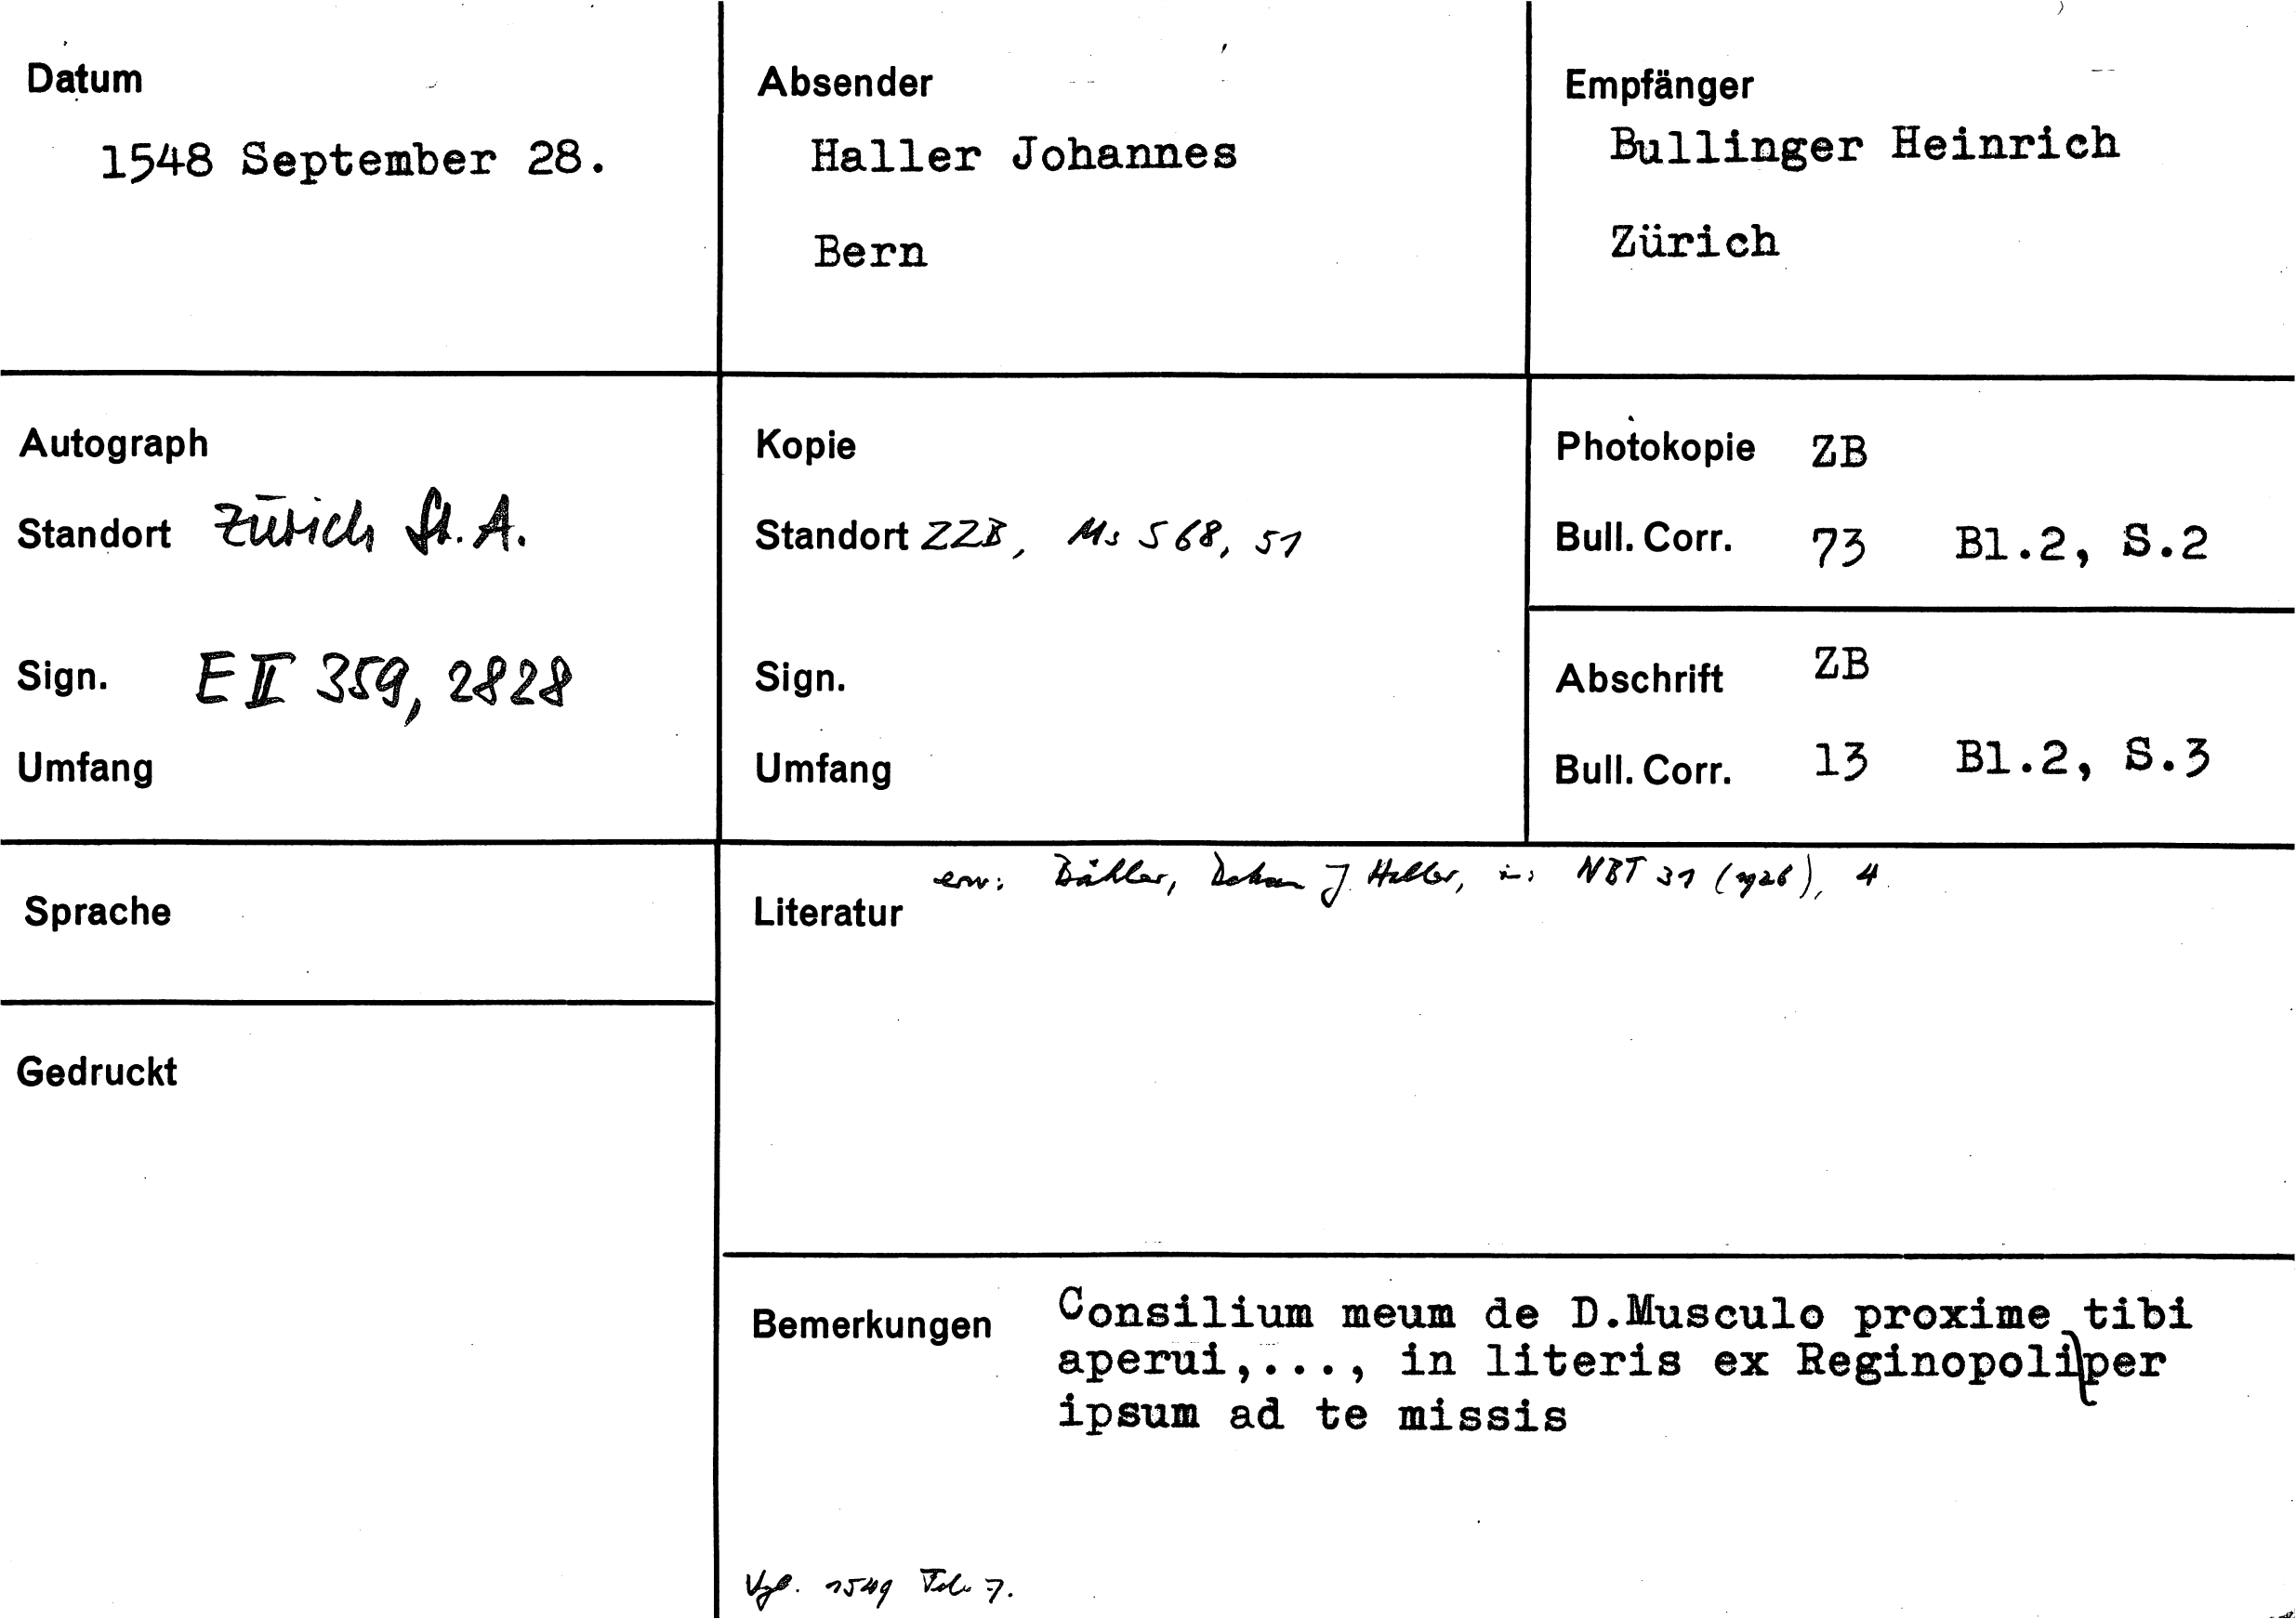 Datum
1548 September 28.
Absender
Haller Johannes
Bern
Empfänger
Bullinger Heinrich
Zürich
Autograph
Standort Zürich St. A.
Sign. E II 359, 2828
Umfang
Kopie
Standort ZZB, Ms S 68, 51
Sign.
Umfang
Photokopie ZB
Bull. Corr. 73 Bl.2, S.2
Abschrift ZB
Bull. Corr. 13 Bl.2, S.3
Sprache
Gedruckt
erw: Bähler, Dekan J. Haller, in: NBT 31 (1926), 4
Literatur
Bemerkungen Consilium meum de D.Musculo proxime tibi
aperui,..., in literis ex Reginopoli per
ipsum ad te missis
Vgl. 1549 Feb 7.